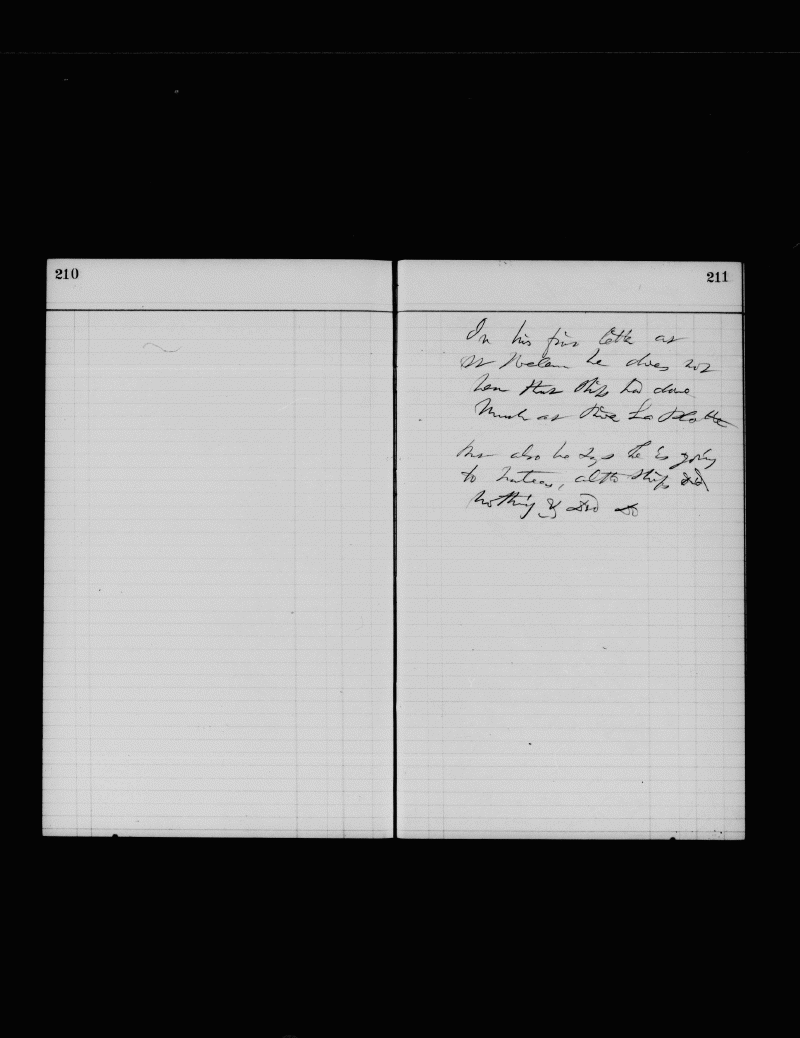 210
211
In his first letter as
St Helena he does not
hear that Ships had done
Much at River La Platte
but also he says he is going
to , altho Ships did
nothing &